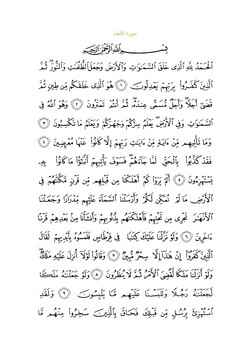 سورة الأنعام
بِسْمِ اللَّهِ الرَّحْمَٰنِ الرَّحِيمِ
الْحَمْدُ لِلَّهِ الَّذِي خَلَقَ السَّمَاوَاتِ وَالْأَرْضَ وَجَعَلَ الظُّلُمَاتِ وَالنُّورَ ۖ ثُمَّ
الَّذِينَ كَفَرُوا بِرَبِّهِمْ يَعْدِلُونَ ﴿١﴾ هُوَ الَّذِي خَلَقَكُم مِّن طِينٍ ثُمَّ
قَضَىٰ أَجَلًا ۖ وَأَجَلٌ مُّسَمًّى عِندَهُ ۖ ثُمَّ أَنتُمْ تَمْتَرُونَ ﴿٢﴾ وَهُوَ اللَّهُ فِي
السَّمَاوَاتِ وَفِي الْأَرْضِ ۖ يَعْلَمُ سِرَّكُمْ وَجَهْرَكُمْ وَيَعْلَمُ مَا تَكْسِبُونَ ﴿٣﴾
وَمَا تَأْتِيهِم مِّنْ آيَةٍ مِّنْ آيَاتِ رَبِّهِمْ إِلَّا كَانُوا عَنْهَا مُعْرِضِينَ ﴿٤﴾
فَقَدْ كَذَّبُوا بِالْحَقِّ لَمَّا جَاءَهُمْ ۖ فَسَوْفَ يَأْتِيهِمْ أَنبَاءُ مَا كَانُوا بِهِ
يَسْتَهْزِئُونَ ﴿٥﴾ أَلَمْ يَرَوْا كَمْ أَهْلَكْنَا مِن قَبْلِهِم مِّن قَرْنٍ مَّكَّنَّاهُمْ فِي
الْأَرْضِ مَا لَمْ نُمَكِّن لَّكُمْ وَأَرْسَلْنَا السَّمَاءَ عَلَيْهِم مِّدْرَارًا وَجَعَلْنَا
الْأَنْهَارَ تَجْرِي مِن تَحْتِهِمْ فَأَهْلَكْنَاهُم بِذُنُوبِهِمْ وَأَنشَأْنَا مِن بَعْدِهِمْ قَرْنًا
آخَرِينَ ﴿٦﴾ وَلَوْ نَزَّلْنَا عَلَيْكَ كِتَابًا فِي قِرْطَاسٍ فَلَمَسُوهُ بِأَيْدِيهِمْ لَقَالَ
الَّذِينَ كَفَرُوا إِنْ هَٰذَا إِلَّا سِحْرٌ مُّبِينٌ ﴿٧﴾ وَقَالُوا لَوْلَا أُنزِلَ عَلَيْهِ مَلَكٌ ۖ
وَلَوْ أَنزَلْنَا مَلَكًا لَّقُضِيَ الْأَمْرُ ثُمَّ لَا يُنظَرُونَ ﴿٨﴾ وَلَوْ جَعَلْنَاهُ مَلَكًا
لَّجَعَلْنَاهُ رَجُلًا وَلَلَبَسْنَا عَلَيْهِم مَّا يَلْبِسُونَ ﴿٩﴾ وَلَقَدِ
اسْتُهْزِئَ بِرُسُلٍ مِّن قَبْلِكَ فَحَاقَ بِالَّذِينَ سَخِرُوا مِنْهُم مَّا